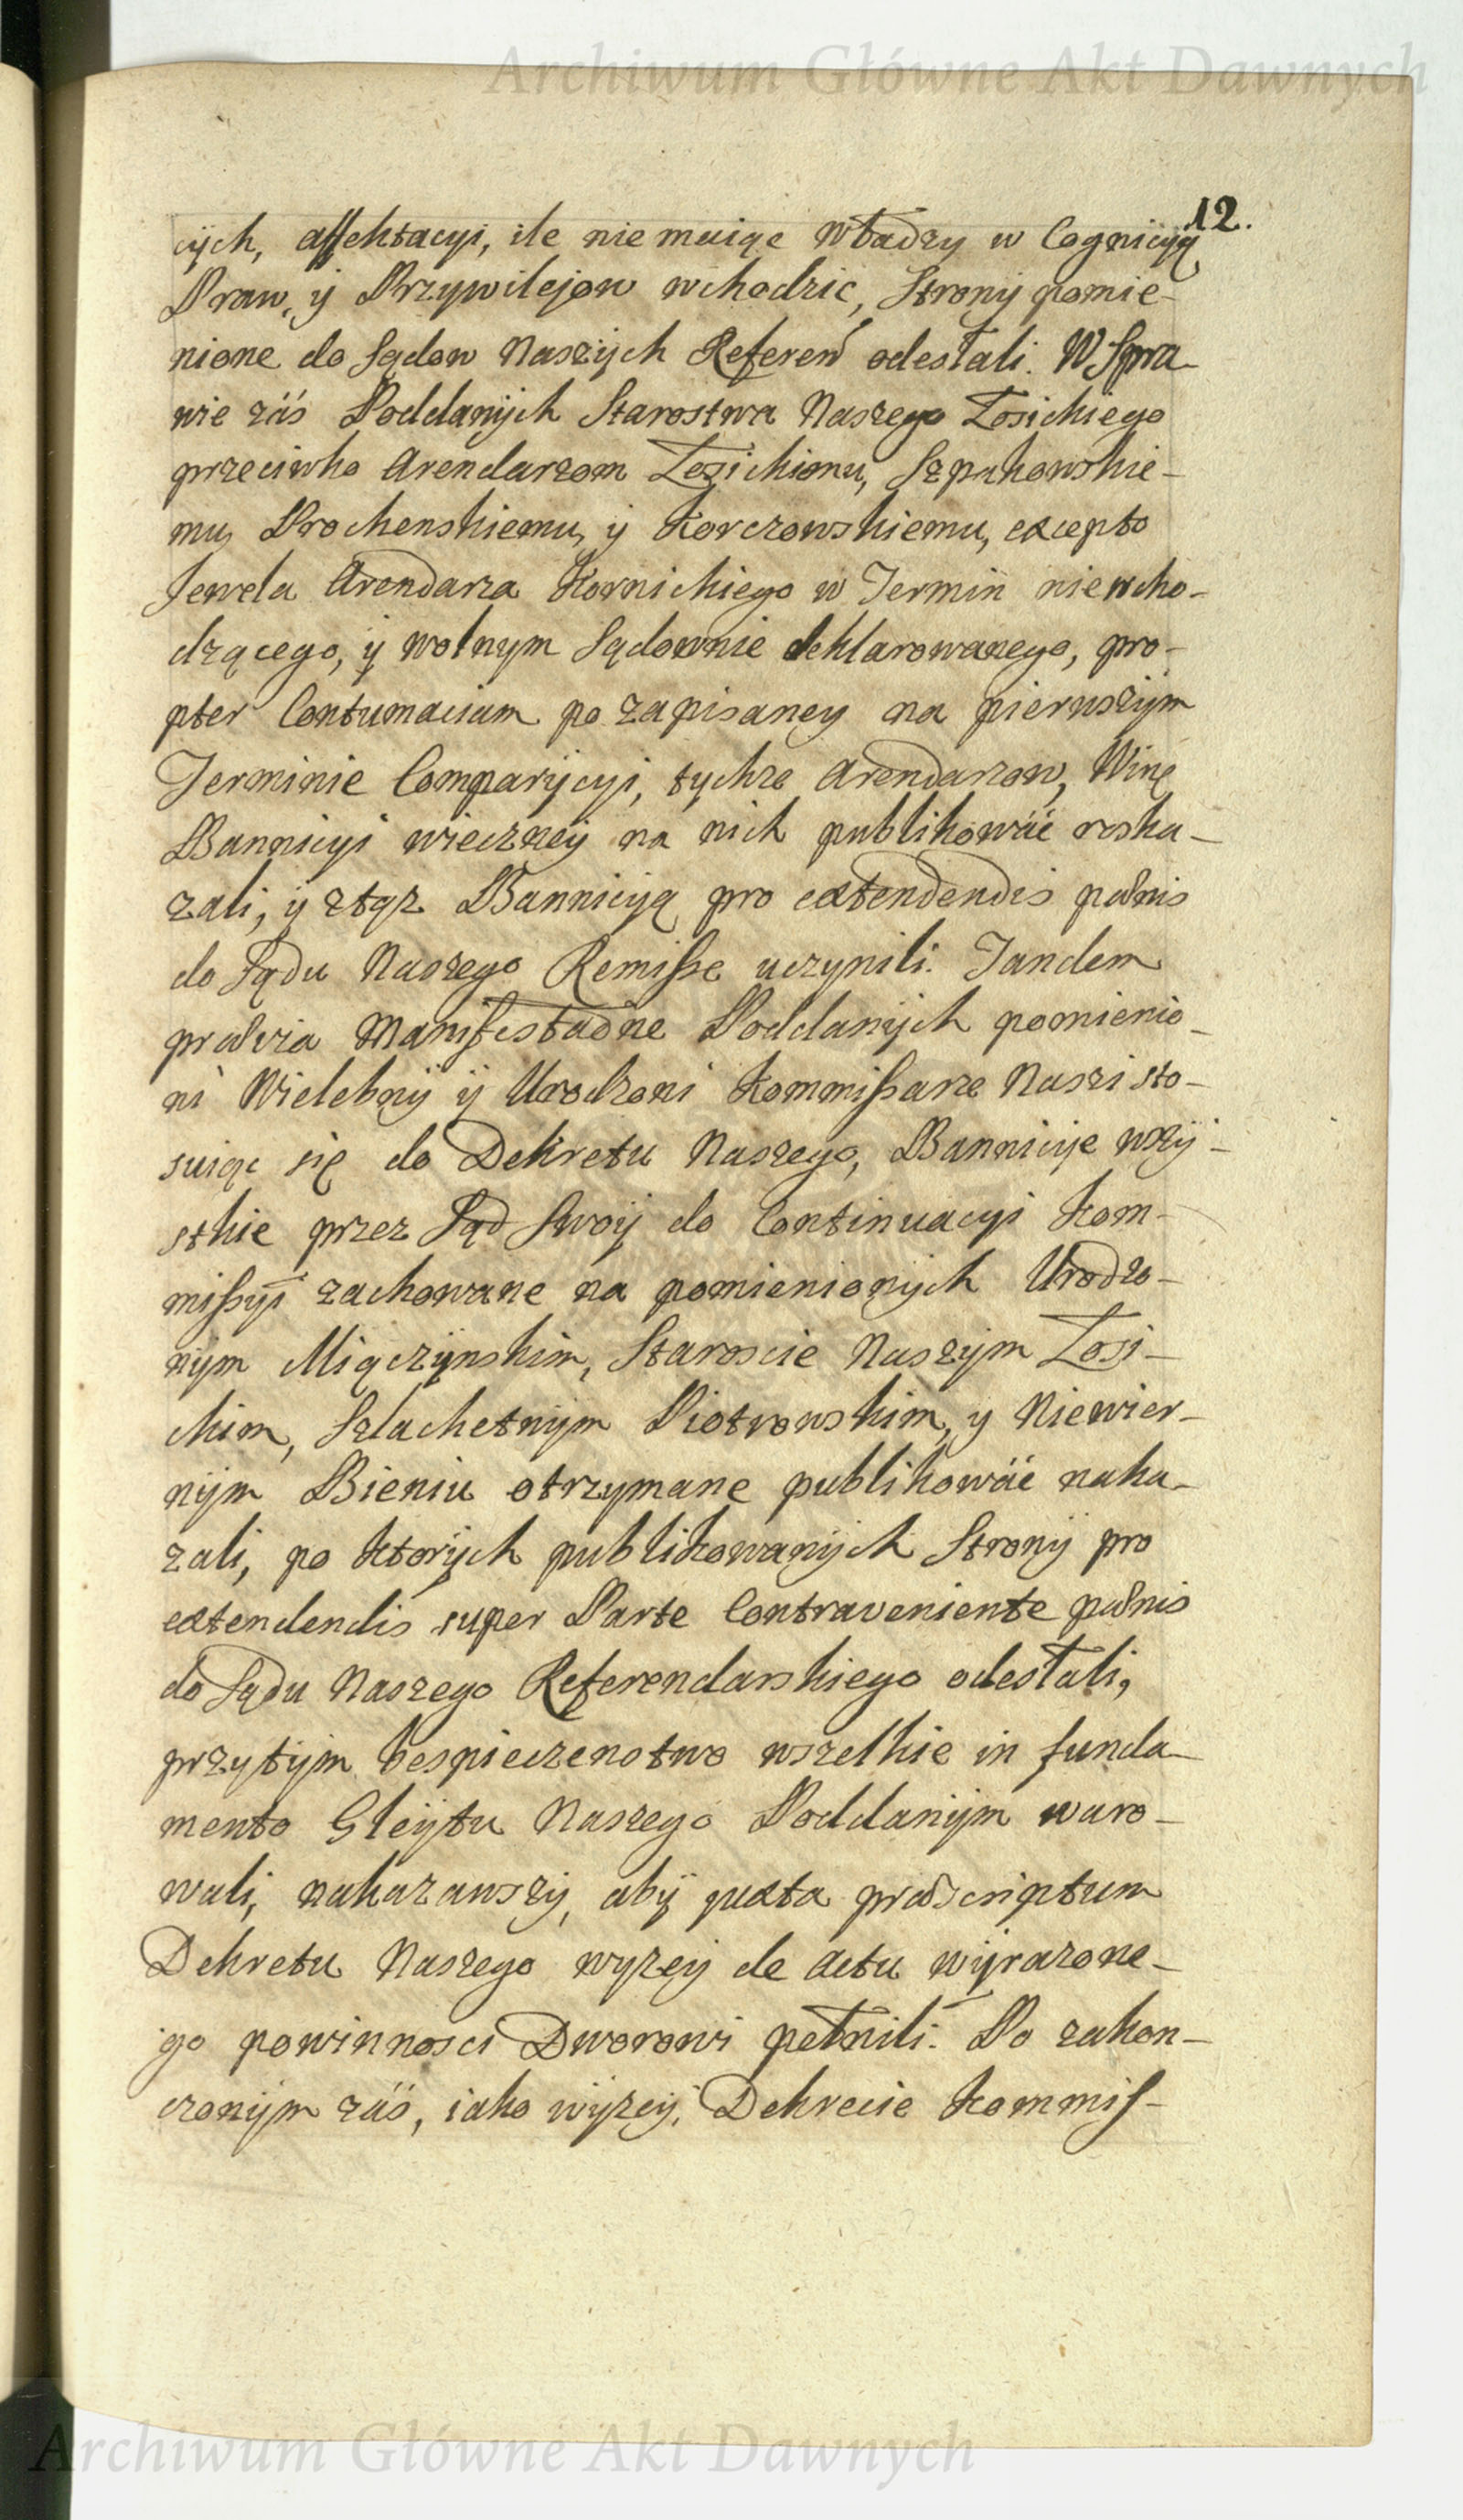 Archiwum Główne Akt Dawnych
12.
cych, affektacyi, ile nie maiąc władzy w Cognicyą
Praw, y Przywilejow wchodzic, Strony pomie-
nione do Sądow Naszych Referen̄ odesłali. W Spra-
wie záś Poddanych Starostwa Naszego Łosickiego
przeciwko Arendarzom Łosickiemu, Szpakowskie-
mu, Prochenskiemu, y Korczowskiemu, excepto
Jewela Arendarza Kornickiego w Termin niewcho-
dzącego, y wolnym Sądownie deklarowanego, pro-
pter Contumaciam po zapisaney na pierwszym
Terminie Comparycyi, tychze Arendarzow, Winę
Bannicyi wieczney na nich publikowáć roska-
zali, y ztąz Bannicyą pro extendendis pænis
do Sądu Naszego Remisse uczynili. Tandem
prævia Manifestaõne Poddanych pomienio-
ni Wielebny y Urodzoni Kommissarze Naszi sto-
suiąc się do Dekretu Naszego, Bannicije wszy-
stkie przez Sąd Swoy do Continuacyi Kom-
missyi zachowane na pomienionych Urodzo-
nym Miączynskim, Staroscie Naszym Łosi-
ckim, Szlachetnym Piotrowskim, y Niewier-
nym Bieniu otrzymane publikowáć naka-
zali, po ktorych publikowanych Strony pro
extendendis super Parte Contraveniente pænis
do Sądu Naszego Referendarskiego odesłali,
przytym bespieczenstwo wszelkie in funda-
mento Gleytu Naszego Poddanym waro-
wali, nakazawszy, aby juxta præscriptum
Dekretu Naszego wyzey de actu wyrazone-
go powinnosci Dworowi pełnili. Po zakon-
czonym záś, iako wyzey, Dekrecie Kommis-
Archiwum Główne Akt Dawnych